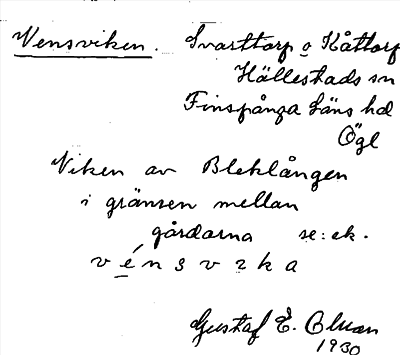 Vensviken. Svarttorp o Kåttorp
Hällestads sn
Finspånga läns hd
Ögl
Viken av Bleklången
i gränsen mellan
gårdarna se: ek.
vénsvıka
Gustaf E. Olman
1930